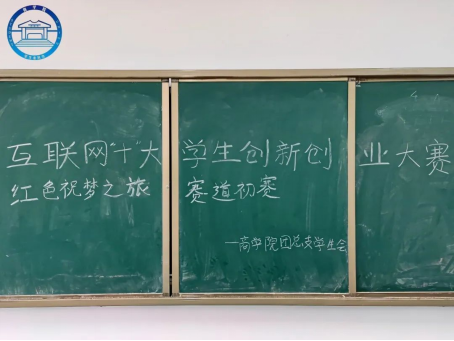 互联网"十"大学生创新创业大赛
红色祝梦之旅 赛道初赛
一商学院团总支学生会